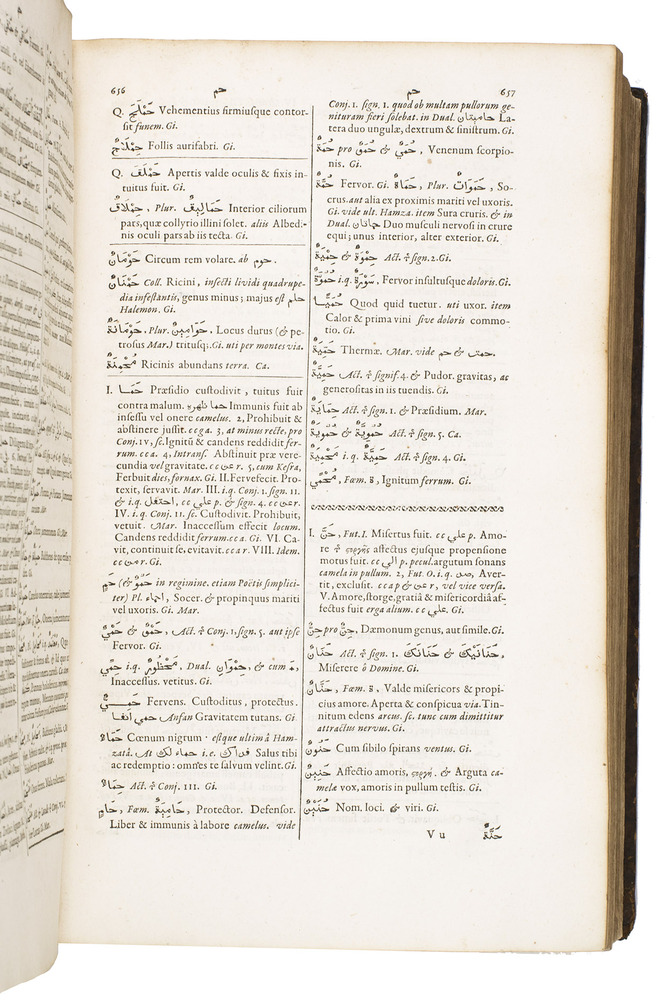 656 حم
Q. حَمْلَجَ Vehementius firmiusque contor-
sit funem. Gi.
حِمْلَاجٌ Follis aurifabri. Gi.
Q. حَمْلَقَ Apertis valde oculis & fixis in-
tuitus fuit. Gi.
حِمْلَاقٌ, Plur. حَمَالِيقُ Interior ciliorum
pars, quæ collyrio illini solet. aliis Albedi-
nis oculi pars ab iis tecta. Gi.
حَوْمَانٌ Circum rem volare. ab حوم.
حَمْنَانٌ Coll. Ricini, insecti lividi quadrupe-
dia infestantis, genus minus; majus est حلم
Halemon. Gi.
حَوْمَانَةٌ, Plur. حَوَامِينُ, Locus durus (& pe-
trosus Mar.) tritusq;. Gi. uti per montes via.
مُحْمِنَةٌ Ricinis abundans terra. Ca.
I. حَمَا Præsidio custodivit, tuitus fuit
contra malum. حما ظهره Immunis fuit ab
insessu vel onere camelus. 2, Prohibuit &
abstinere jussit. cc g a. 3, at minus recte, pro
Conj. IV, sc. Ignitũ & candens reddidit fer-
rum. cc a. 4, Intransf. Abstinuit præ vere-
cundia vel gravitate. cc عن r. 5, cum Kesra,
Ferbuit dies, fornax. Gi. II. Fervefecit. Pro-
texit, servavit. Mar. III. i.q. Conj. 1. sign. 11.
& i.q. احتفل, cc علي p. & sign. 4. cc عن r.
IV. i.q. Conj. 11. sc. Custodivit. Prohibuit,
vetuit. Mar. Inaccessum effecit locum.
Candens reddidit ferrum. cc a. Gi. VI. Ca-
vit, continuit se, evitavit. cc a r. VIII. Idem.
cc من r. Gi.
حَمٍ (& حَمْوٌ in regimine. etiam Poëtis simplici-
ter) Pl. احماء, Socer. & propinquus mariti
vel uxoris. Gi. Mar.
حَمْيٌ & حَمْوٌ, Act. ÷ Conj. 1, sign. 5. aut ipse
Fervor. Gi.
حِمًي i.q. مَحْظُورٌ, Dual. حِمْوَانِ, & cum ة,
Inaccessus. vetitus. Gi.
حَمِيٌّ Fervens. Custoditus, protectus.
حمي انفا Anfan Gravitatem tutans. Gi
حَمَاءٌ Cœnum nigrum. estque ultimâ Ham-
zatâ. At حماء لك i.e. فداك Salus tibi
ac redemptio: omnes te salvum velint. Gi.
حِمَاءٌ Act. ÷ Conj. III. Gi.
حَامٍ, Fœm. حَامِيَةٌ, Protector. Defensor.
Liber & immunis à labore camelus. vide
حم 657
Conj. 1. sign. 1. quod ob multam pullorum ge-
nituram fieri solebat. in Dual. حاميتان La-
tera duo ungulæ, dextrum & sinistrum. Gi.
حُمَةٌ pro حُمَيٌ & حُمَوٌ, Venenum scorpio-
nis. Gi.
حُمَّةٌ Fervor. Gi. حَمَاةٌ, Plur. حَمَوَاتٌ, So-
crus. aut alia ex proximis mariti vel uxoris.
Gi. vide ult. Hamza. item Sura cruris. & in
Dual. حماتان Duo musculi nervosi in crure
equi; unus interior, alter exterior. Gi.
حِمْيَةٌ & حِمْوَةٌ Act. ÷ sign. 2. Gi.
حُمُوَّةٌ i.q. سَوْرَةٌ, Fervor insultusque doloris. Gi.
حُمَيَّا Quod quid tuetur. uti uxor. item
Calor & prima vini sive doloris commo-
tio. Gi.
حَمِيَةٌ Thermæ. Mar. vide حم & حمت.
حَمِيَّةٌ Act. ÷ signif. 4. & Pudor. gravitas, ac
generositas in iis tuendis. Gi.
حِمَايَةٌ Act. ÷ sign. 1. & Præsidium. Mar.
حَمْوِيَةٌ & حَمُويَّةٌ Act. ÷ sign. 5. Ca.
مَحْمِيَةٌ i.q. حَمِيَّةٌ Act. ÷ sign. 4. Gi.
مُحْمًي, Fœm. ة, Ignitum ferrum. Gi.
I. حَنَّ, Fut. I. Misertus fuit. cc علي p. Amo-
re ÷ ςοργῆς affectus ejusque propensione
motus fuit. cc الي p. pecul. argutum sonans
camela in pullum. 2, Fut. O. i.q. صد, Aver-
tit, exclusit. cc a p & عن r, vel vice versa.
V. Amore, storge, gratiâ & misericordiâ af-
fectus fuit erga alium. cc علي. Gi.
حِنٌّ pro جِنٌّ, Dæmonum genus, aut simile. Gi.
حَنَانٌ Act. ÷ sign. 1. حَنَانَكَ & حَنَانَيْكَ,
Miserere ô Domine. Gi.
حَنَّانٌ, Fœm. ة, Valde misericors & propi-
cius amore. Aperta & conspicua via. Tin-
nitum edens arcus. sc. tunc cum dimittitur
attractus nervus. Gi.
حَنُونٌ Cum sibilo spirans ventus. Gi.
حَنِينٌ Affectio amoris, ςοργή. & Arguta ca-
melæ vox, amoris in pullum testis. Gi.
حُنَيْنٌ Nom. loci. & viri. Gi.
V u حَنَّةٌ